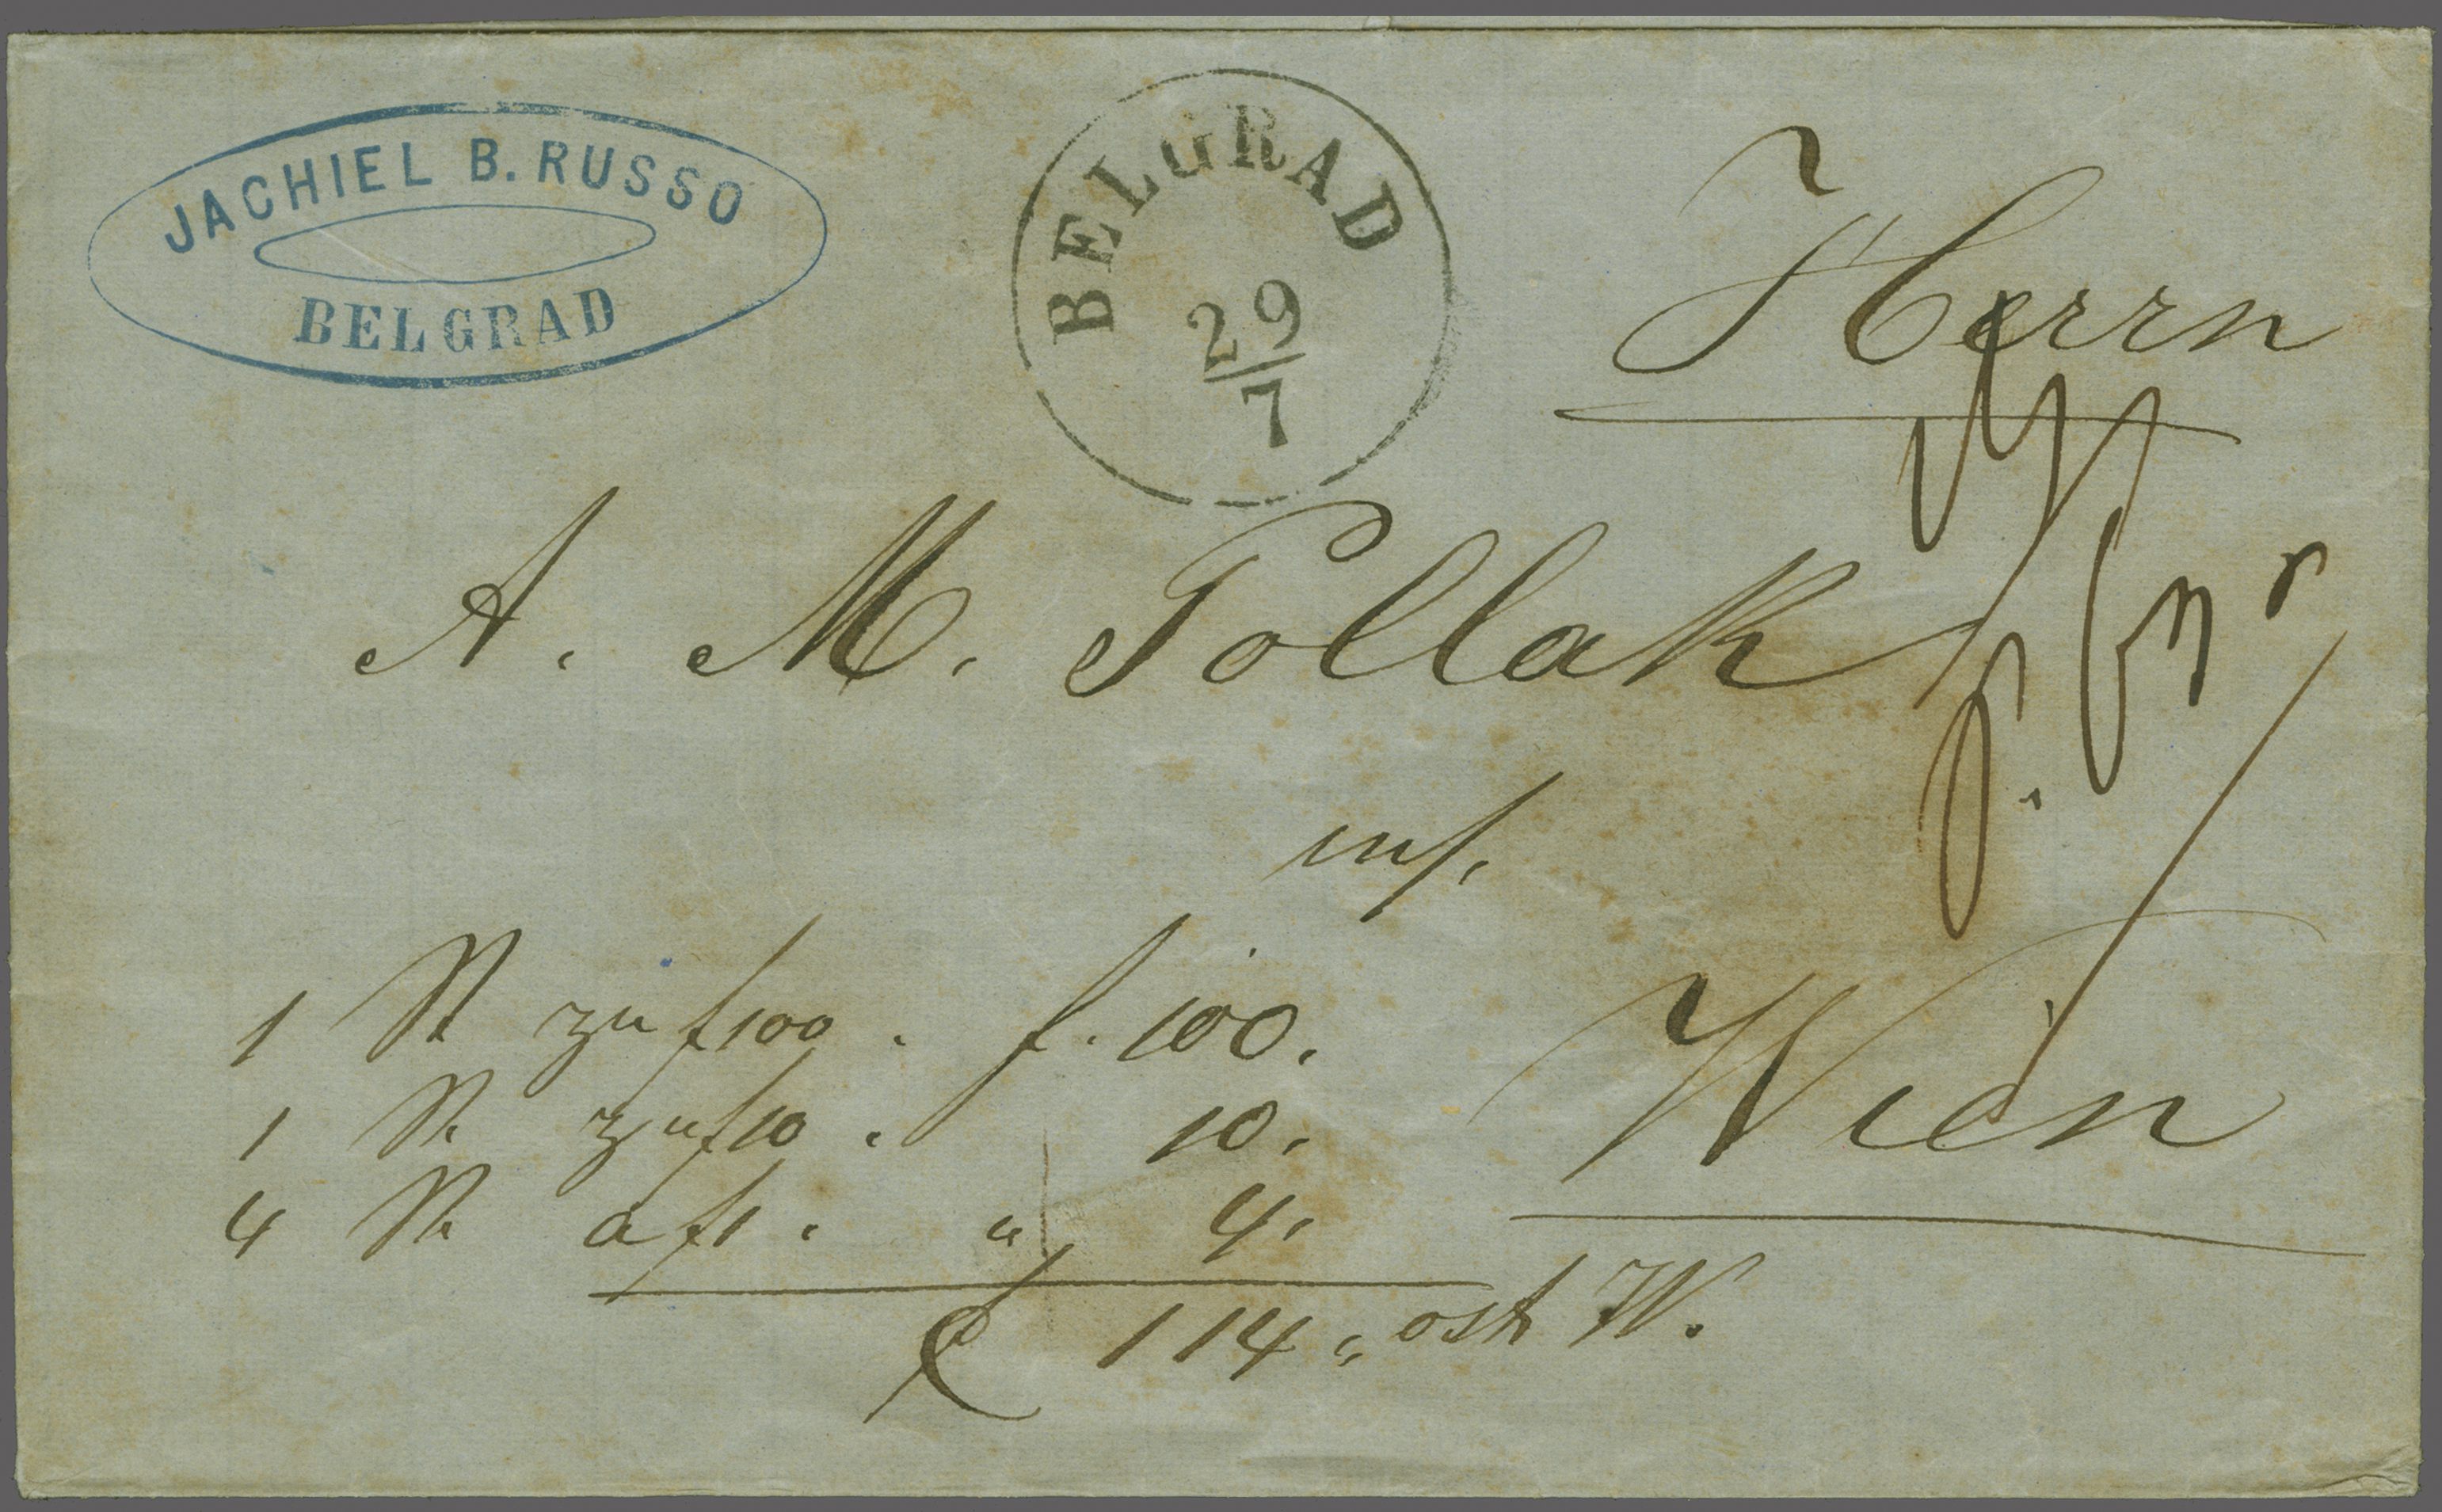 JACHIEL B. RUSSO
BELGRAD
BELGRAD
29/7
Herrn
A. M. Pollak
1 St zu f 100. f. 100.
1 St. zu f 10. 10.
4 St. a f 1. " 4.
114 „ östr W.
Wien